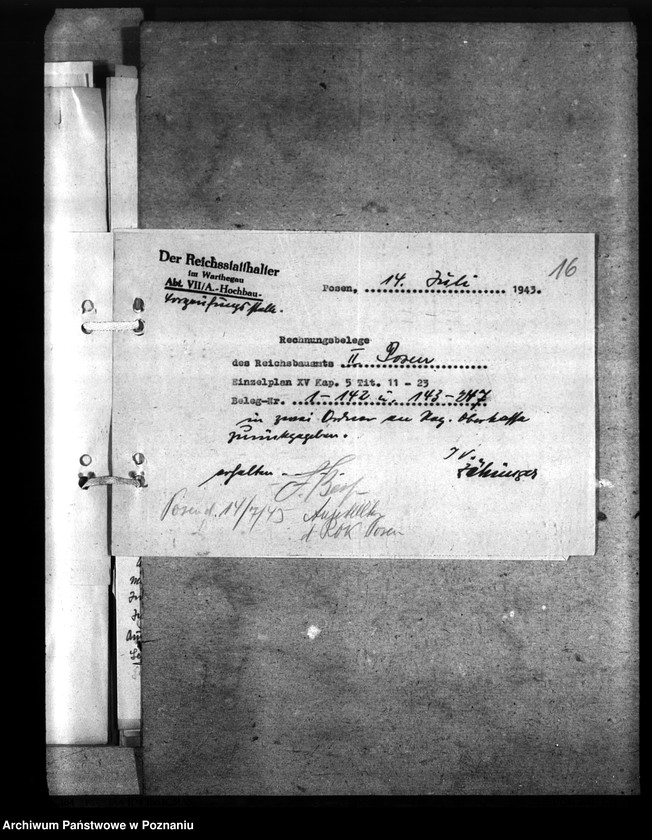 16
Der Reichsstatthalter
im Warthegau
Abt. VII/A.-Hochbau-
Vorprüfungsstelle.
Posen, 14. Juli 1943.
Rechnungsbelege
des Reichsbauamts II. Posen
Einzelplan XV Kap. 5 Tit. 11 - 23
Beleg-Nr. 1 - 142 u. 143 - 247
in zwei Ordner an Reg. Oberkasse
zurückgegeben.
I V.
erhalten
Posen d. 14/7/43
d ROK Posen
Archiwum Państwowe w Poznaniu